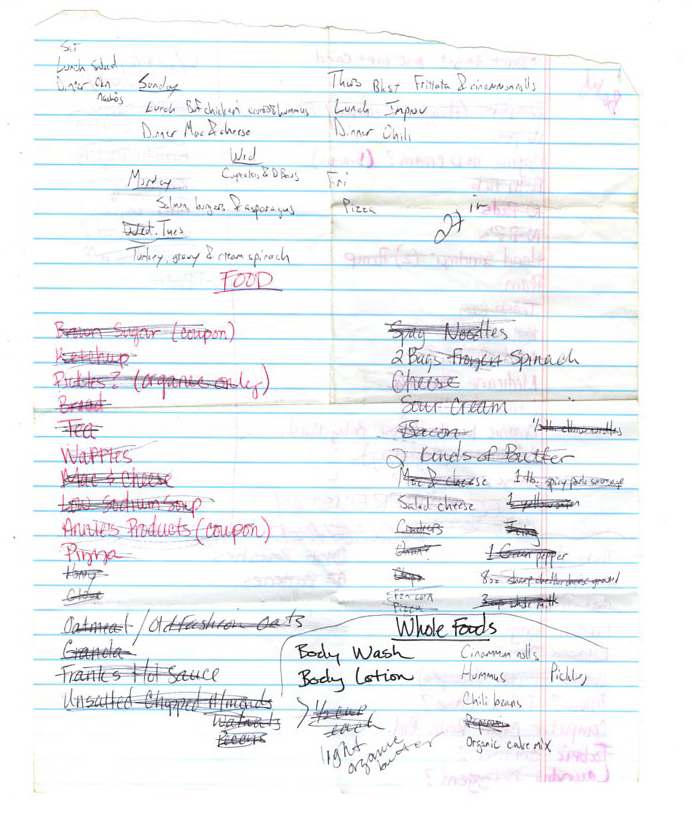 Sat
Lunch Salad
Dinner Nachos
Sunday
Lunch chicken hummus
Dinner Mac & cheese
Wed
Cupcakes &
Monday
Salmon burgers & asparagus
Wed. Tues
Turkey, gravy & cream spinach
Thurs Bkst Frittata & cinammon rolls
Lunch Improv
Dinner Chili
Fri
Pizza
27 in
FOOD
Brown Sugar (coupon)
Ketchup
Pickles? (organic only)
Bread
Tea
Waffles
Mac & Cheese
Low Sodium Soup
Annie's Products (coupon)
Pizza
Honey
Oatmeal / Old Fashion Oats
Granola
Frank's Hot Sauce
Unsalted Chopped Almonds
Walnuts
Pecans
1/2 cup
each
light
organic
butter
Spag Noodles
2 Bags Frozen Spinach
Cheese
Sour Cream
Bacon
2 Kinds of Butter
Mac & cheese
Salad cheese
Crackers
Chips
Pizza
1 lb. spicy pork sausage
1 yellow onion
1 Green pepper
8oz sharp cheddar cheese grated
3 cup whole milk
Whole Foods
Body Wash
Body Lotion
Cinammon rolls
Hummus
Pickles
Chili beans
Organic cake mix